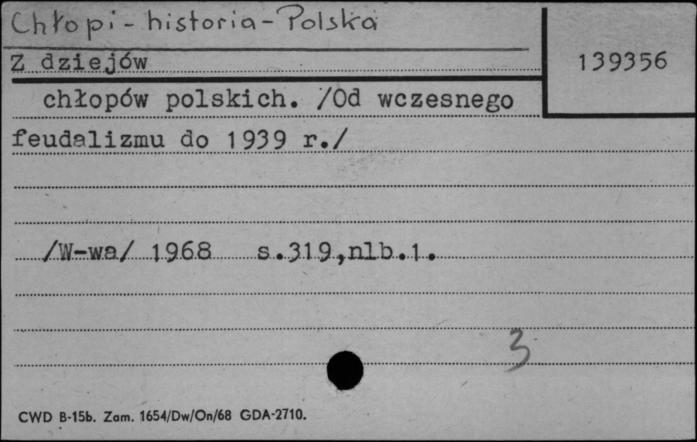 Chłopi - historia - Polska
Z dziejów
139356
chłopów polskich. /Od wczesnego
feudalizmu do 1939 r./
/W-wa/ 1968 s.319,nlb.1.
3
CWD B-15b. Zam. 1654/Dw/On/68 GDA-2710.